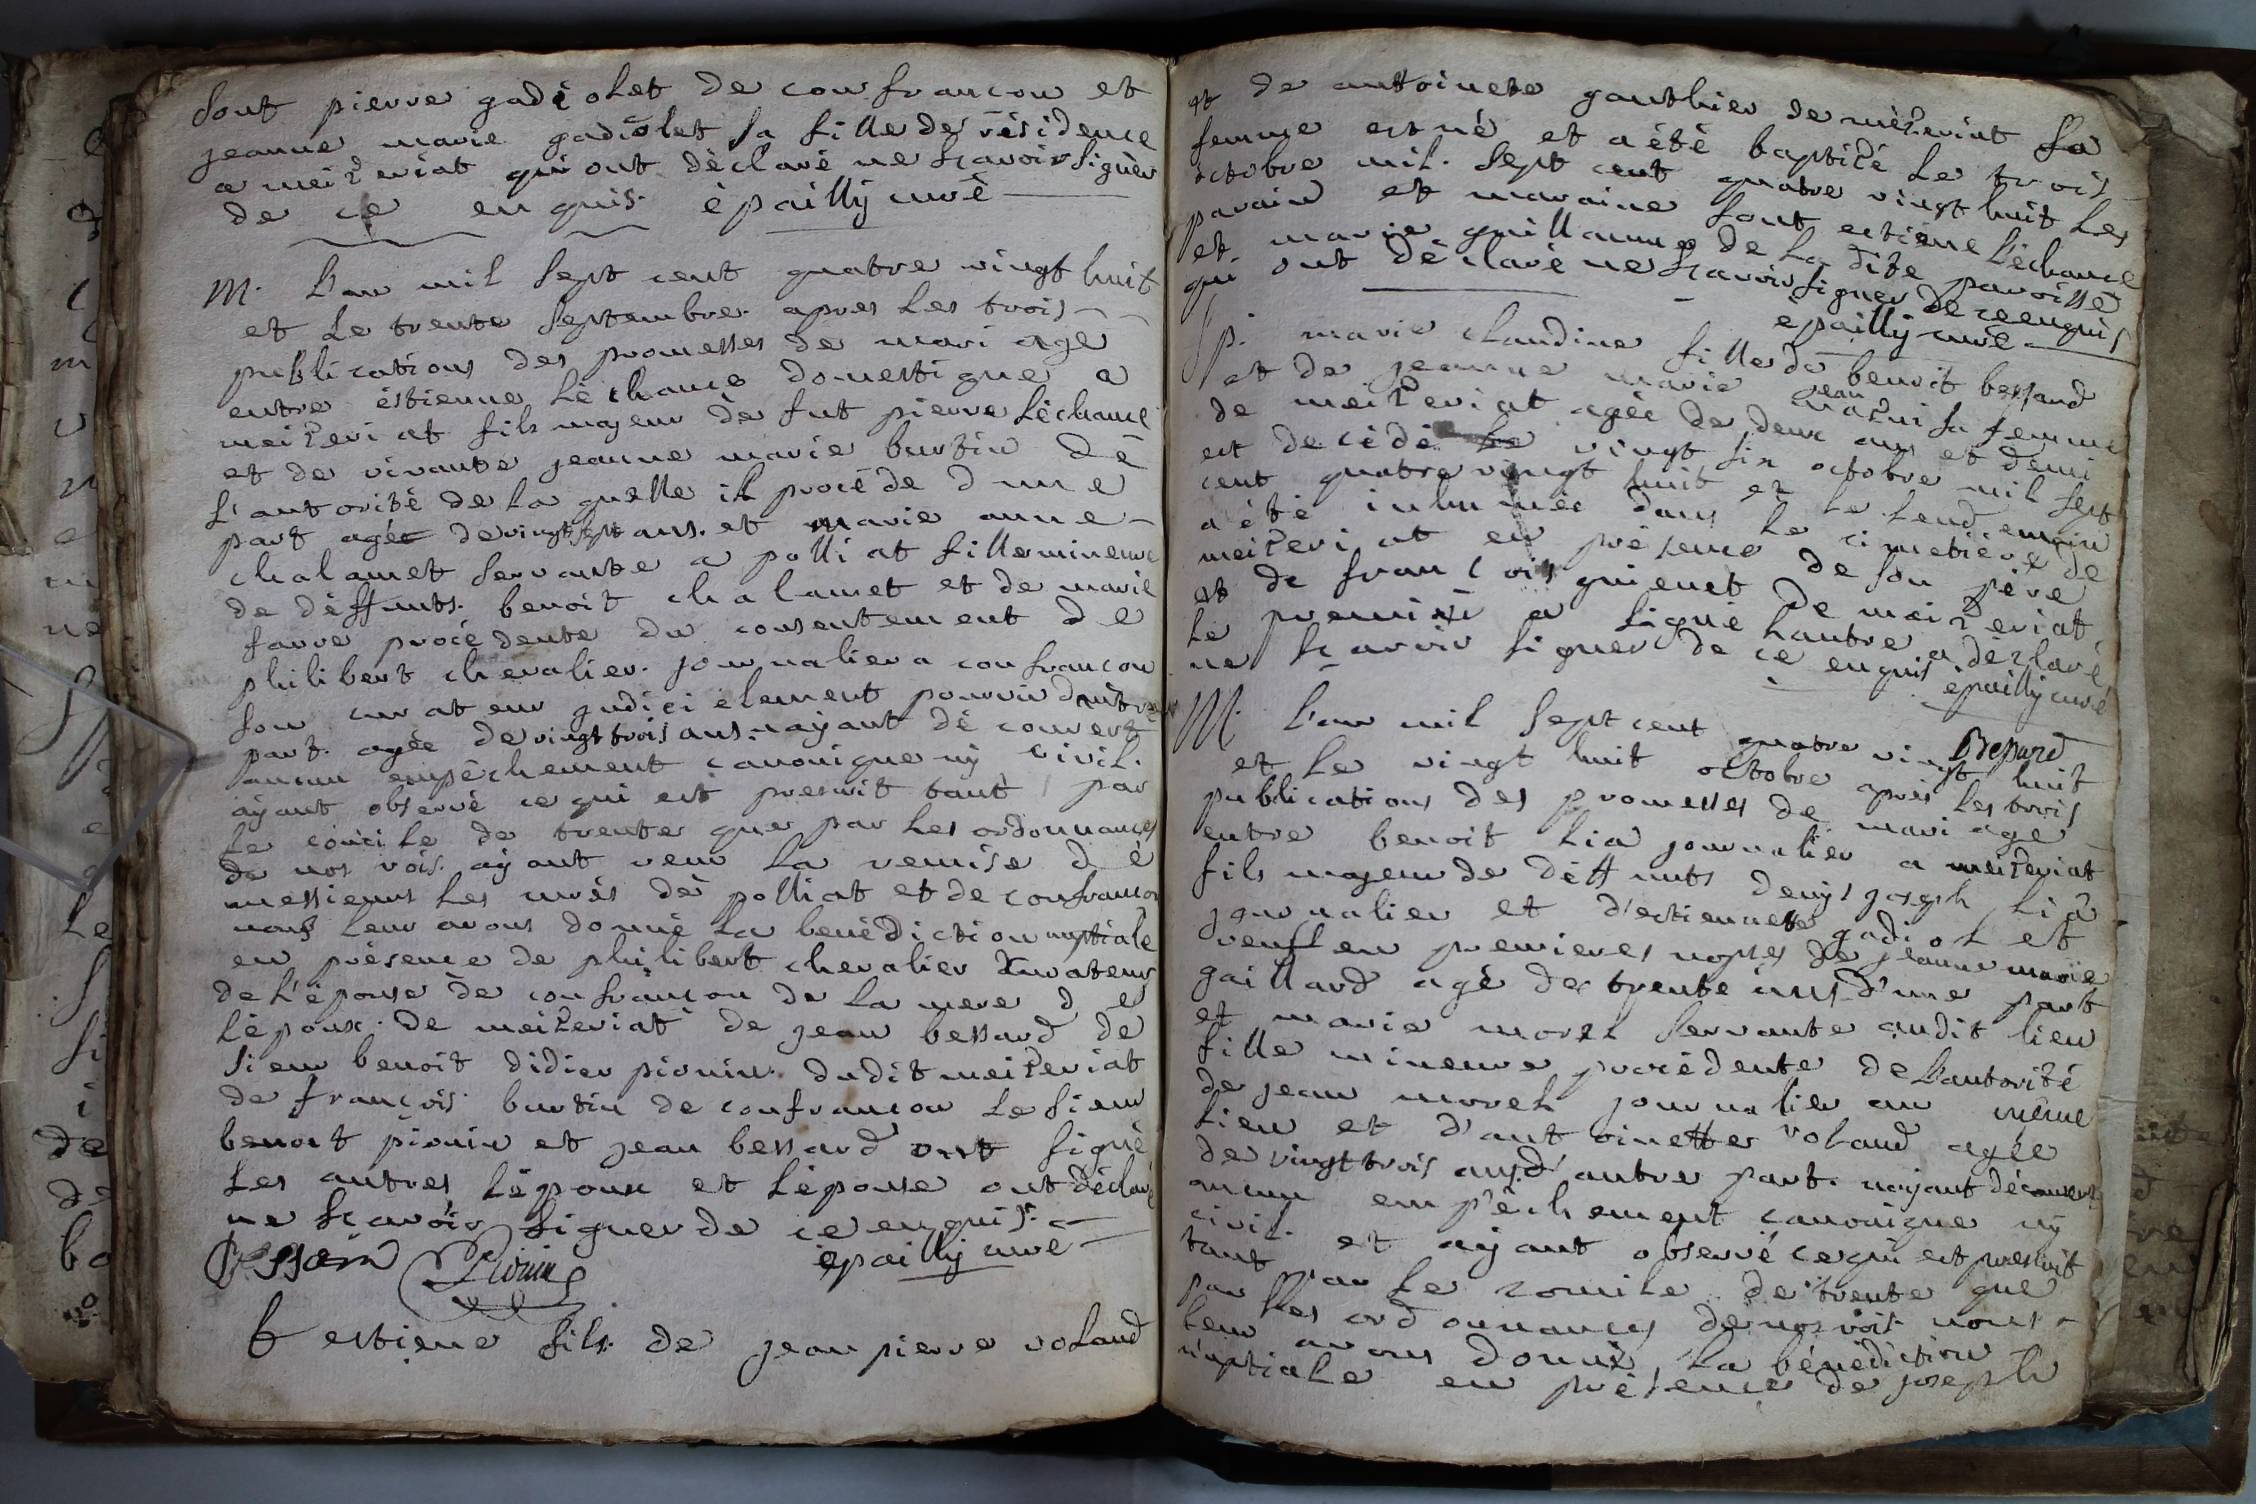 sont pierre gadiolet de confrancon et
jeanne marie gadiolet sa fille de résidence
a meizeriat qui ont déclaré ne scavoir signer
de ce enquis. épailly curé
M. L'an mil sept cent quatre vingt huit
et le trente septembre apres les trois
publications des promesses de mariage
entre éstienne léchance domestique a
meizeriat fils majeur de fut pierre léchance
et de vivante jeanne marie burtin de
l'autorité de la quelle il procéde d'une
part agée de vingt sept ans. et marie anne
chalamet servante a polliat fille mineure
de déffunts. benoit chalamet et de marie
favre procédente du consentement de
philibert chevalier. journalier a confrancon
son curateur judicielement pourvu d'autre
part. agée de vingt trois ans. n'ayant découvert
aucun empéchement canonique ny civil.
ayant observé ce qui est prescrit tant par
le concile de trente que par les ordonnances
de nos rois. ayant veu la remise de
messieurs les curés de polliat et de confrancon
nous leur avons donné la bénédiction nuptiale
en présence de philibert chevalier curateur
de l'épouse de confrancon de la mere de
l'époux. de meizeriat de jean bessard de
sieur benoit didier pionin. dudit meizeriat
de françois burtin de confrancon le sieur
benoit pionin et jean bessard ont signé
les autres l'époux et l'épouse ont déclaré
ne scavoir signer de ce enquis.
Bessard Pionin épailly curé
b estiene fils de jean pierre voland
et de antoinete gauthier de mézeriat sa
femme est né et a été baptisé le trois
octobre mil sept cent quatre vingt huit les
parain et maraine sont estiene léchance
et marie guillaume de la dite paroisse
qui ont déclaré ne scavoir signer de ce enquis
épailly curé
Sp. marie claudine fille de benoit bessard
et de jeanne marie jean mazui sa femme
de meizeriat agée de deux ans et demi
est décédé le vingt six octobre mil sept
cent quatre vingt huit et le lendemain
a été inhumée dans le cimetiére de
meizeriat en présence de son pére
et de francois guienet de meizeriat
le premier a signé l'autre a déclaré
ne scavoir signer de ce enquis épailly curé
Bessard
M. L'an mil sept cent quatre vingt huit
et le vingt huit octobre aprés les trois
publications des promesses de mariage
entre benoit lia journalier a meizeriat
fils majeur de déffunts denys joseph lia
journalier et d'estiennette gadiolet
veuf en premieres noces de jeanne marie
gaillard agé de trente ans d'une part
et marie morel servante audit lieu
fille mineure procédente de l'autorité
de jean morel journalier au même
lieu et d'antoinette voland agée
de vingt trois ans d'autre part. n'ayant découvert
aucun empéchement canonique ny
civil. et ayant observé ce qui est prescrit
tant par le concile de trente que
par les ordonnances de nos rois nous
leur avons donné la bénédiction
nuptiale en présence de joseph